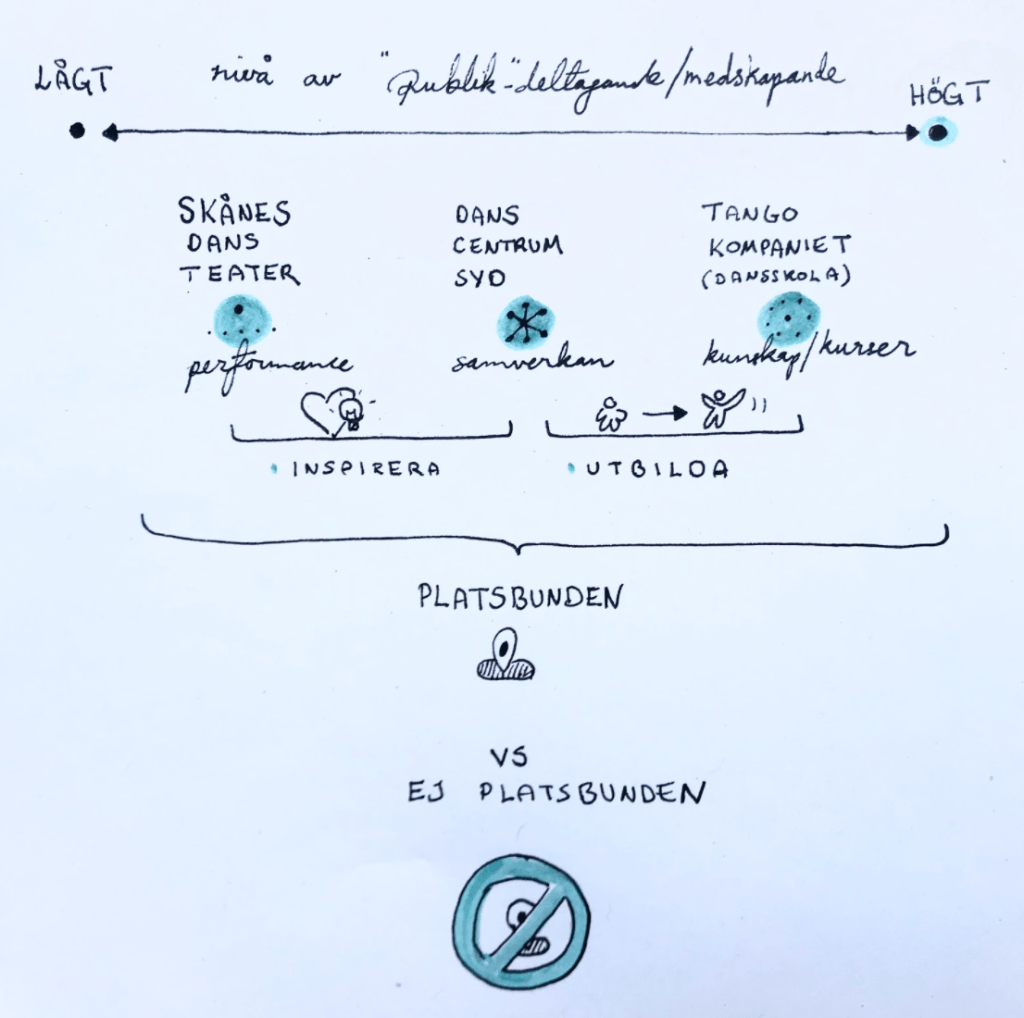 LÅGT nivå av "Publik-"deltagande/medskapande HÖGT
SKÅNES
DANS
TEATER
performance
DANS
CENTRUM
SYD
samverkan
TANGO
KOMPANIET
(DANSSKOLA)
kunskap/kurser
• INSPIRERA
• UTBILDA
PLATSBUNDEN
VS
EJ PLATSBUNDEN